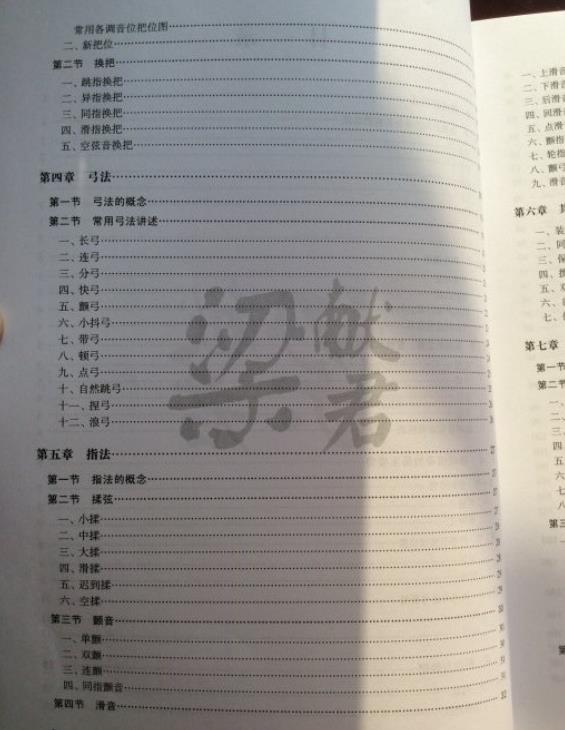 常用各调音位把位图
二、新把位
第二节 换把
一、跳指换把
二、异指换把
三、同指换把
四、滑指换把
五、空弦音换把
第四章 弓法
第一节 弓法的概念
第二节 常用弓法讲述
一、长弓
二、连弓
三、分弓
四、快弓
五、颤弓
六、小抖弓
七、带弓
八、顿弓
九、点弓
十、自然跳弓
十一、捏弓
十二、浪弓
第五章 指法 27
第一节 指法的概念 27
第二节 揉弦 27
一、小揉 27
二、中揉 28
三、大揉 28
四、滑揉 28
五、迟到揉 29
六、空揉 29
第三节 颤音 30
一、单颤 30
二、双颤 30
三、连颤 31
四、同指颤音 31
第四节 滑音 32
梁献君
一、上滑音
二、下滑音
三、后滑音
四、回滑音
五、点滑
六、颤指
七、轮指
八、颤弓
九、滑音
第六章
一、装
二、同
三、保
四、
五、双
六、
七、
第七章
第一节
第二节
一、
二、
三、
四、
五
六
七
八
第三